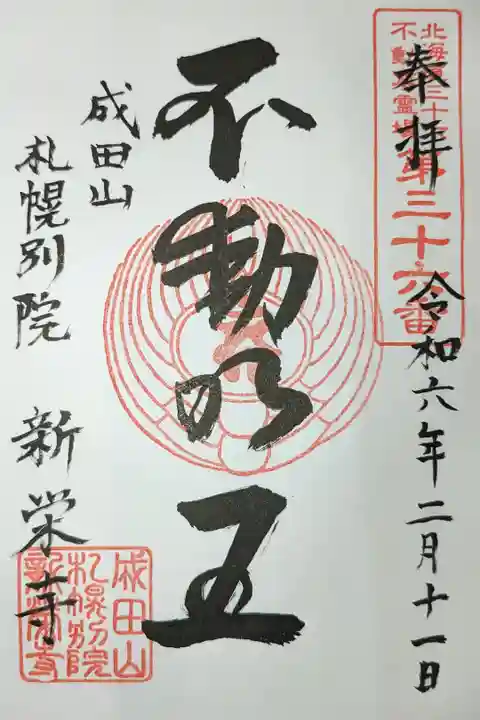 奉拝
北海道三十六
不動尊霊場
第三十六番
令和六年二月十一日
不動明王
成田山
札幌別院 新栄寺
成田山
札幌別院
新栄寺